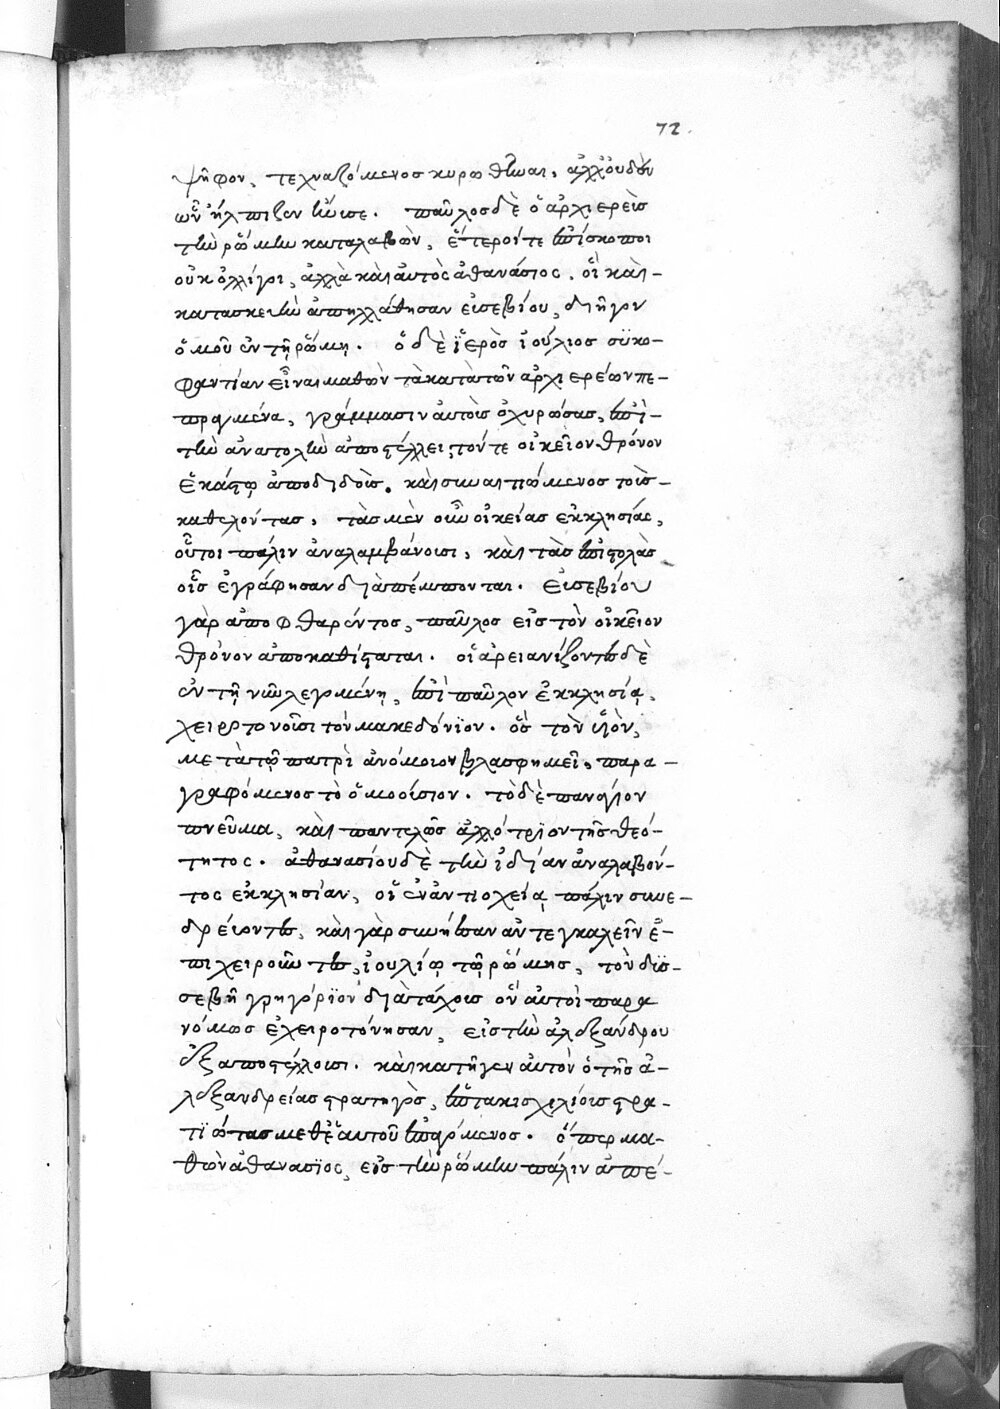 72.
ψῆφον, τεχναζόμενος κυρωθῆναι, ἀλλ' οὐδὲν
ὧν ἤλπιζεν ἤνισε. παῦλος δὲ ὁ ἀρχιερεὺς
τὴν ῥώμην καταλαβὼν, ἕτεροί τε ἐπίσκοποι
οὐκ ὀλλίγοι, ἀλλὰ καὶ αὐτὸς ἀθανάσιος, οἳ καὶ
κατασκευὴν ἀπηλλάθησαν εὐσεβίου, διῆγον
ὁμοῦ ἐν τῇ ῥώμῃ. ὁ δὲ ἱερὸς ἰούλιος συκο-
φαντίαν εἶναι μαθὼν τὰ κατὰ τῶν ἀρχιερέων πε-
πραγμένα, γράμμασιν αὐτοὺς ὀχυρώσας, ἐπὶ
τὴν ἀνατολὴν ἀποστέλλει, τόν τε οἰκεῖον θρόνον
ἑκάστῳ ἀποδιδοὺς, καὶ συναιτιώμενος τοὺς
καθελόντας, τὰς μὲν οὖν οἰκείας ἐκκλησίας,
οὗτοι πάλιν ἀναλαμβάνουσι, καὶ τὰς ἐπιστολὰς
οἷς ἐγράφησαν διαπέμπονται. εὐσεβίου
γὰρ ἀποφθαρέντος, παῦλος εἰς τὸν οἰκεῖον
θρόνον ἀποκαθίσταται. οἱ ἀρειανίζοντες δὲ
ἐν τῇ νῦν λεγομένῃ, ἐπὶ παῦλον ἐκκλησίᾳ,
χειροτονοῦσι τὸν μακεδόνιον. ὃς τὸν υἱὸν,
μετὰ τῷ πατρὶ ἀνόμοιον βλασφημεῖ, παρα-
γραφόμενος τὸ ὁμοούσιον. τὸ δὲ πανάγιον
πνεῦμα, καὶ παντελῶς ἀλλότριον τῆς θεό-
τητος. ἀθανασίου δὲ τὴν ἰδίαν ἀναλαβόν-
τος ἐκκλησίαν, οἱ ἐν ἀντιοχείᾳ πάλιν συνε-
δρεύοντες, καὶ γὰρ συνήεσαν ἀντεγκαλεῖν ἐ-
πιχειροῦντες, ἰουλίῳ τῷ ῥώμης, τὸν δυσ-
σεβῆ γρηγόριον διὰ τάχους ὃν αὐτοὶ παρα
νόμως ἐχειροτόνησαν, εἰς τὴν ἀλεξάνδρου
ἐξαποστέλλουσι. καὶ κατῆγεν αὐτὸν ὁ τῆς ἀ-
λεξανδρείας στρατηγὸς, ἑπτακισχιλίους στρα-
τιώτας μεθ' ἑαυτοῦ ἐπαγόμενος. ὅπερ μα-
θὼν ἀθανασίος, εἰς τὴν ῥώμην πάλιν ἀπέ-